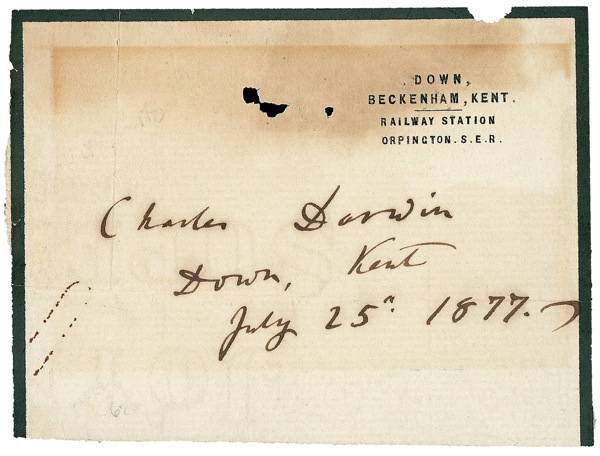 DOWN,
BECKENHAM, KENT.
RAILWAY STATION
ORPINGTON. S.E.R.
Charles Darwin
Down, Kent
July 25th. 1877.